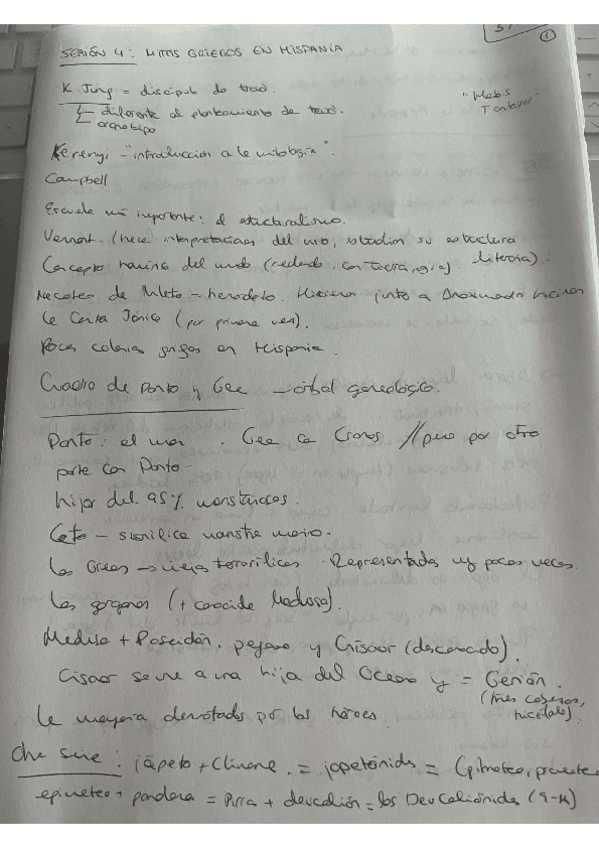 SESIÓN 4: MITOS GRIEGOS EN HISPANIA
①
K. Jung = discípulo de Freud.
diferente al planteamiento de Freud.
arquetipo
"Habis
Kerenyi - "introducción a la mitología".
Campbell
Escuela más importante: el estructuralismo.
Vernant. (hace interpretaciones del mito, estudian su estructura
literaria).
Concepto
del mundo
Hecateo de Mileto - herodoto.
junto a Anaximandro hicieron
la Carta Jónica (por primera vez).
Pocas colonias griegas en Hispania.
Cuadro de Ponto y Gea - árbol genealógico.
Ponto: el mar. Gea con Cronos // pero por otro
parte con Ponto-
hijos del 95% monstruosos.
Ceto - significa monstruo marino.
Las Greas → viejas terroríficas. Representadas muy pocas veces.
Las gorgonas (+ conocida Medusa).
Medusa + Poseidón. pegaso y Crisaor (desconocido).
Crisaor se une a una hija del Oceano y = Gerión.
(tres cabezas,
tricéfalo).
la mayoría derrotados por los héroes.
Otra serie: iápeto + Climene. = japetónidas = Epimeteo, prometeo
epimeteo + pandora = Pirra + deucalión = los Deucaliónidas